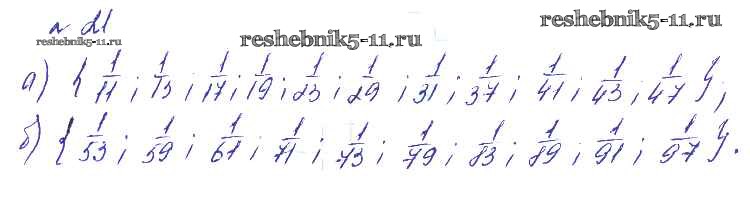 № 21
reshebnik5-11.ru reshebnik5-11.ru reshebnik5-11.ru
а) { 1/11 ; 1/13 ; 1/17 ; 1/19 ; 1/23 ; 1/29 ; 1/31 ; 1/37 ; 1/41 ; 1/43 ; 1/47 } ;
б) { 1/53 ; 1/59 ; 1/61 ; 1/71 ; 1/73 ; 1/79 ; 1/83 ; 1/89 ; 1/91 ; 1/97 } .